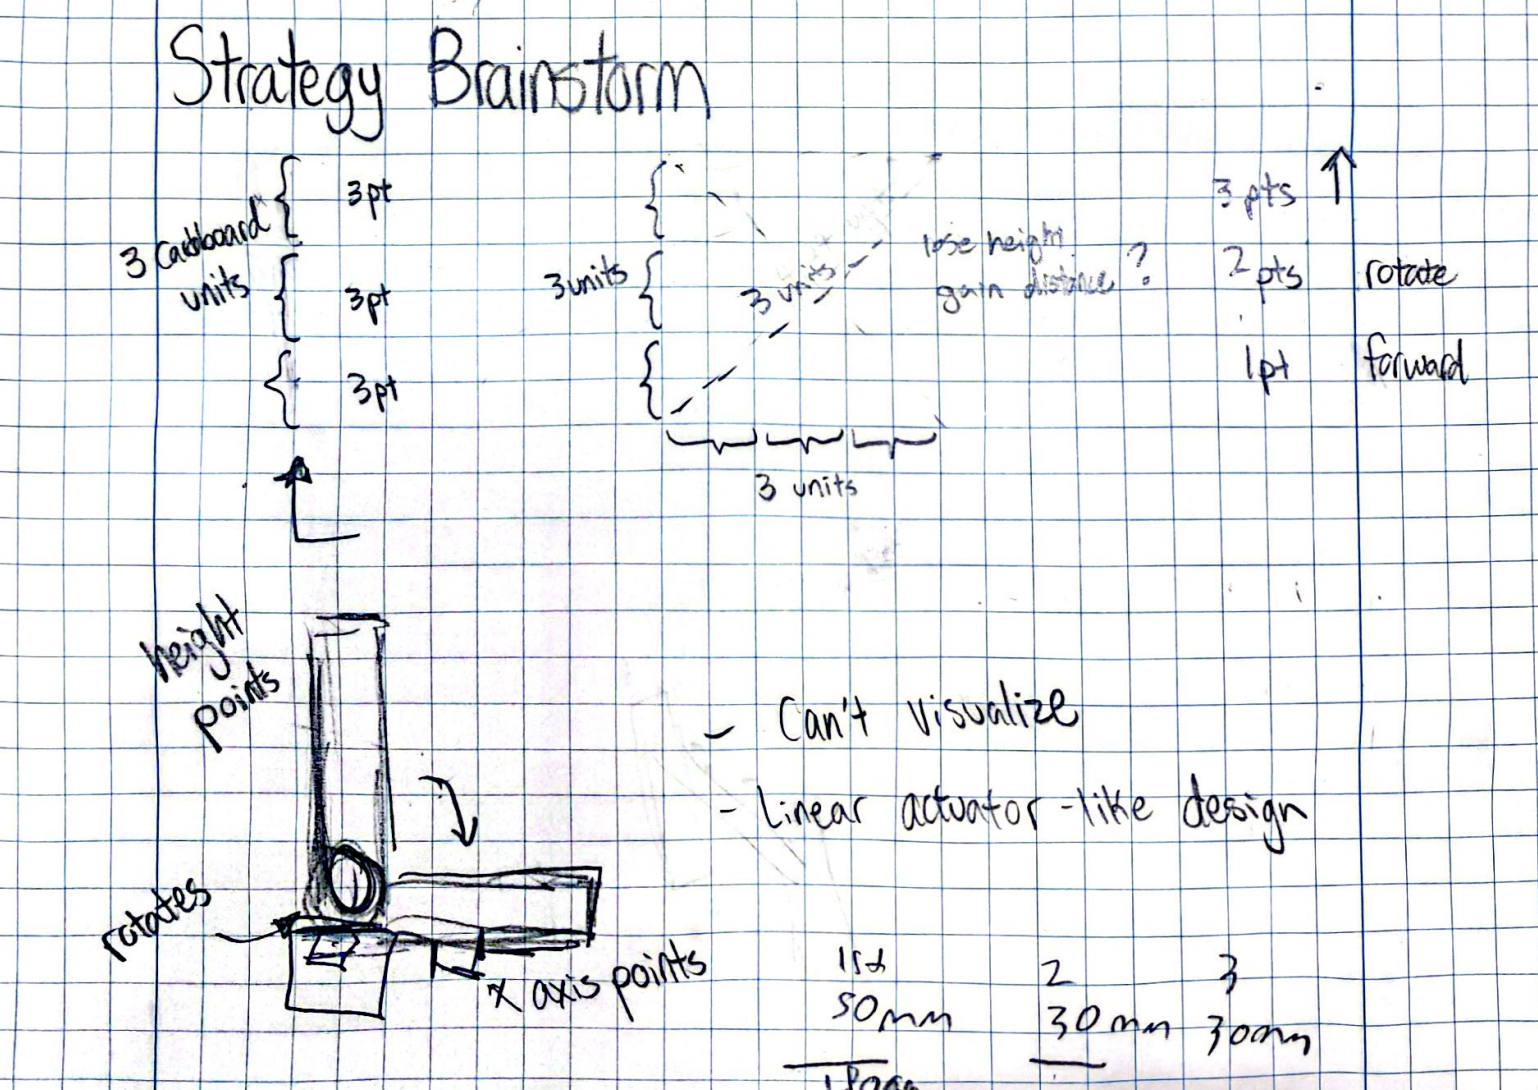 Strategy Brainstorm
3 Cardboard
units
3pt
3pt
3pt
3units
3 units
3 units
lose height
gain distance ?
3 pts
2 pts rotate
1pt forward
height
points
rotates
x axis points
- Can't visualize
- Linear actuator-like design
1st 2 3
50mm 30mm 30mm